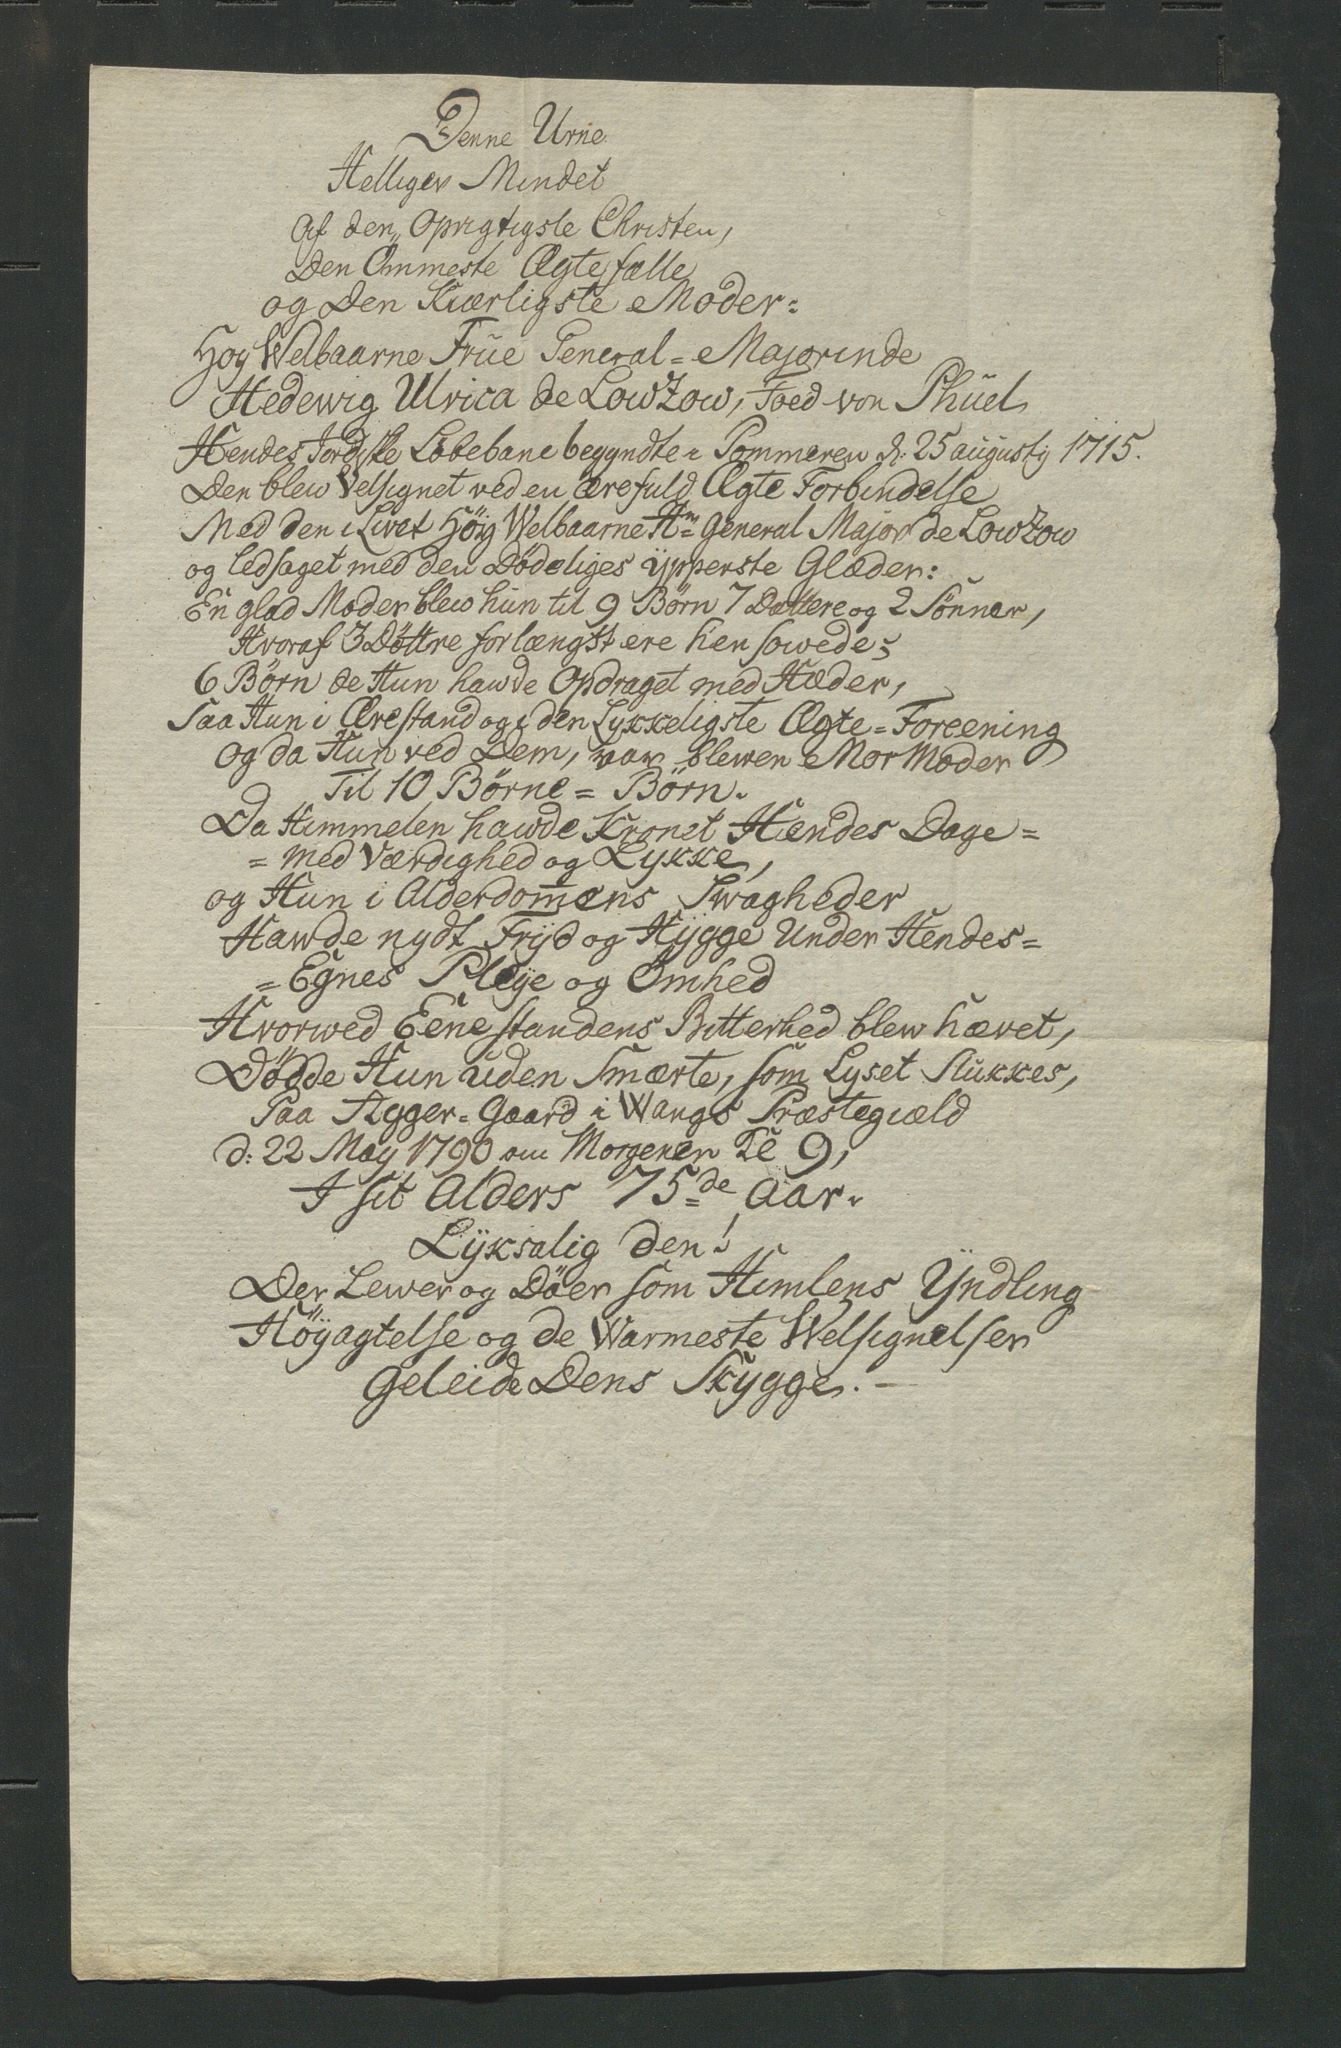 Denne Urne
Helliger Mindet
Af den Oprigtigste Christen,
Den Ömmeste Ægtefælle
og Den Kiærligste Moder=
Høy Welbaarne Frue General=Majorinde
Hedewig Ulrica de LowZow, Foed von Phüel
Hendes Jordiske Löbebane begyndte i Pommeren d: 25 augustij 1715.
Den blew Velsignet ved en ærefuld Ægte Forbindelse
Med den i Livet Höy Welbaarne Hr General Major de LowZow
og ledsaget med den Dödeliges ypperste Glæder:
En glad Moder blew hun til 9 Börn 7 Dættere og 2 Sönner,
Hvoraf 3 Döttre forlængst ere hensowede;
6 Börn de Hun hawde Opdraget med Hæder,
Saa Hun i Ærestand og i den Lykkeligste Ægte=Foreening
og da Hun ved Dem, var blewen MorModer
Til 10 Börne=Börn.
Da Himmelen hawde Kronet Hendes Dage=
=med Værdighed og Lykke,
og Hun i Alderdom̅ens Swagheder
Hawde nydt Fryd og Hygge Under Hendes=
=Egnes Pleye og Ömhed
Hvorwed Eenestandens Bitterhed blew hævet,
Dödde Hun uden Smærte, som Lyset Slukkes,
Paa Agger=Gaard i Wangs Præstegiæld
d: 22 May 1790 om Morgenen Kl 9,
I sit Alders 75de Aar.
Lyksalig den!
Der Lewer og Döer som Himlens Yndling
Höyagtelse og de Warmeste Welsignelser
Geleide Dens Skygge.—